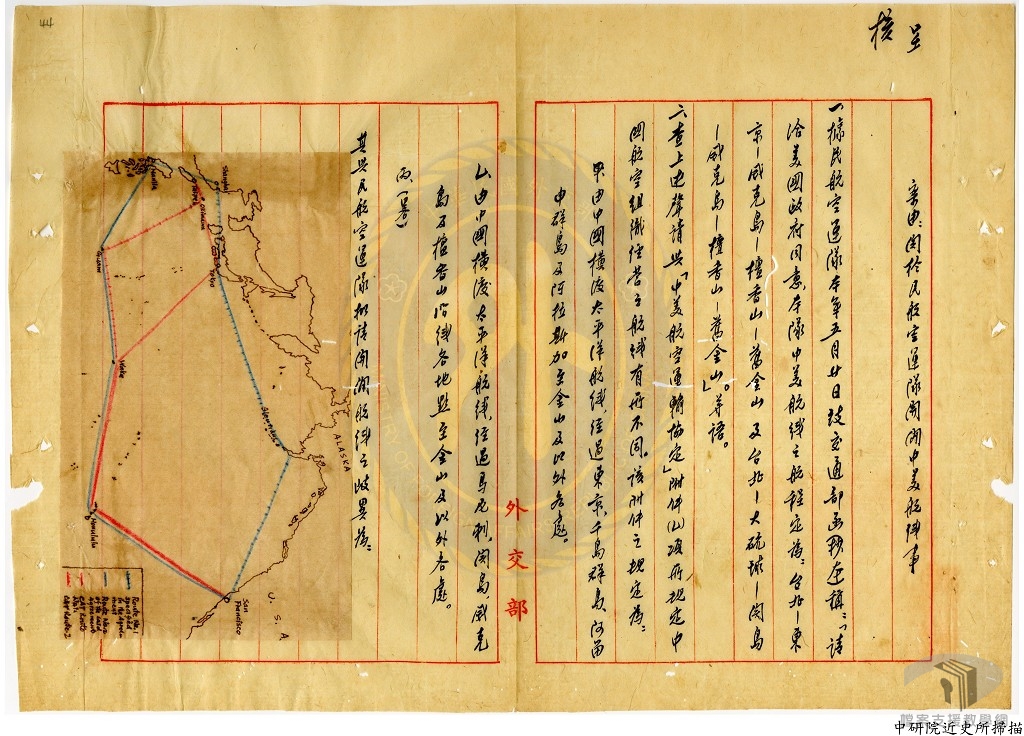 44
擬呈
案由：關於民航空運隊開闢中美航綫事
一、據民航空運隊本年五月廿日致交通部函抄送稱：「請
洽美國政府同意本隊中美航綫之航程定為：台北－東
京－威克島－檀香山－舊金山及台北－大硫球－關島
－威克島－檀香山－舊金山」。等語。
二、查上述聲請與「中美航空運輸協定」附件(一)項所規定中
國航空組織經營之航綫有所不同。該附件之規定為：
甲、由中國橫渡太平洋航綫，經過東京、千島群島、阿留
申群島及阿拉斯加至金山及以外各處。
乙、由中國橫渡太平洋航綫，經過馬尼剌、關島、威克
島及檀香山沿綫各地點至金山及以外各處。
丙、(略)
其與民航空運隊擬請開闢航綫之歧異為：
外交部
Manila
Shanghai
Taipei
Okinawa
Tokyo
Guam
Wake
Honolulu
ALASKA
San Francisco
U. S. A
Route No. 1
specified
in the Agreement
Route No. 2
of the said
agreement
CAT Route
No. 1
CAT Route No. 2
檔案支援教學網
中研院近史所掃描